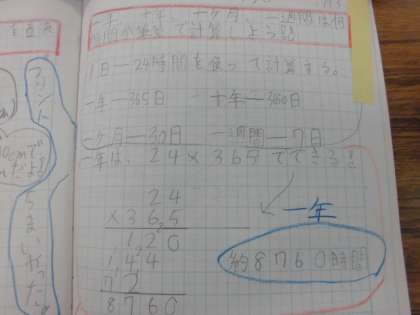 一年、十年、一ヶ月、一週間は何
時間か筆算で計算しよう
1日―24時間を使って計算する。
一年―365日 十年―3650日
一ヶ月―30日 一週間―7日
一年は、24×365でできる!
24
×365
120
144
72
8760
一年
約8760時間
プリント